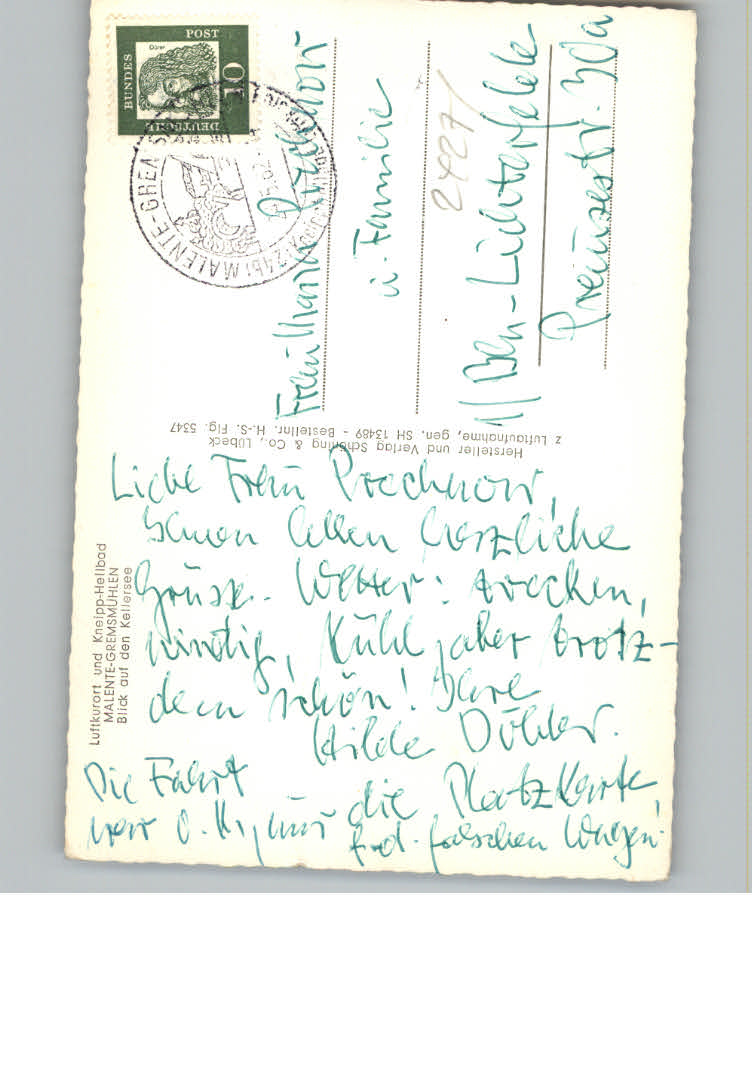 Liebe Frau Prochnow,
Ihnen allen herzliche
Grüsse. Wetter: trocken,
windig, kühl, aber trotz-
dem schön! Ihre
Hilde Döhler.
Die Fahrt
war o. K., nur die Platzkarte
f. d. falschen Wagen!
Frau Maria Prochnow
u. Familie
2427/
1/ Bln-Lichterfelde
30a
Luftkurort und Kneipp-Heilbad
MALENTE-GREMSMÜHLEN
Blick auf den Kellersee
Hersteller und Verlag Schöning & Co., Lübeck
z Luftaufnahme, gen. SH 13489 - Bestellnr. H.-S. Flg. 5347
Dürer
DEUTSCHE
BUNDES
POST
10
(24b) MALENTE-GREMS